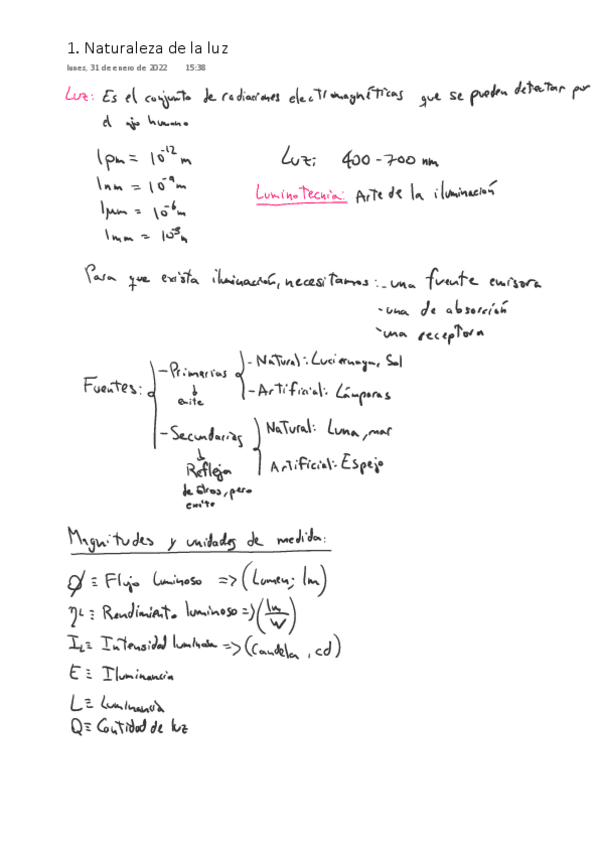 1. Naturaleza de la luz
lunes, 31 de enero de 2022 15:38
Luz: Es el conjunto de radiaciones electromagnéticas que se pueden detectar por
el ojo humano
1pm = 10^-12 m
Luz: 400-700 nm
1nm = 10^-9 m
Luminotecnia: Arte de la iluminación
1μm = 10^-6 m
1mm = 10^-3 m
Para que exista iluminación, necesitamos: - una fuente emisora
- una de absorción
- una receptora
Fuentes:
- Primarias
↓
emite
- Natural: Luciernaga, Sol
- Artificial: Lámparas
- Secundarias
↓
Refleja
de otros, pero
emite
Natural: Luna, mar
Artificial: Espejo
Magnitudes y unidades de medida:
Ø ≡ Flujo luminoso => (Lumen; lm)
ηL ≡ Rendimiento luminoso => (lm/W)
IL ≡ Intensidad luminosa => (Candela, cd)
E ≡ Iluminancia
L ≡ Luminancia
Q ≡ Cantidad de luz